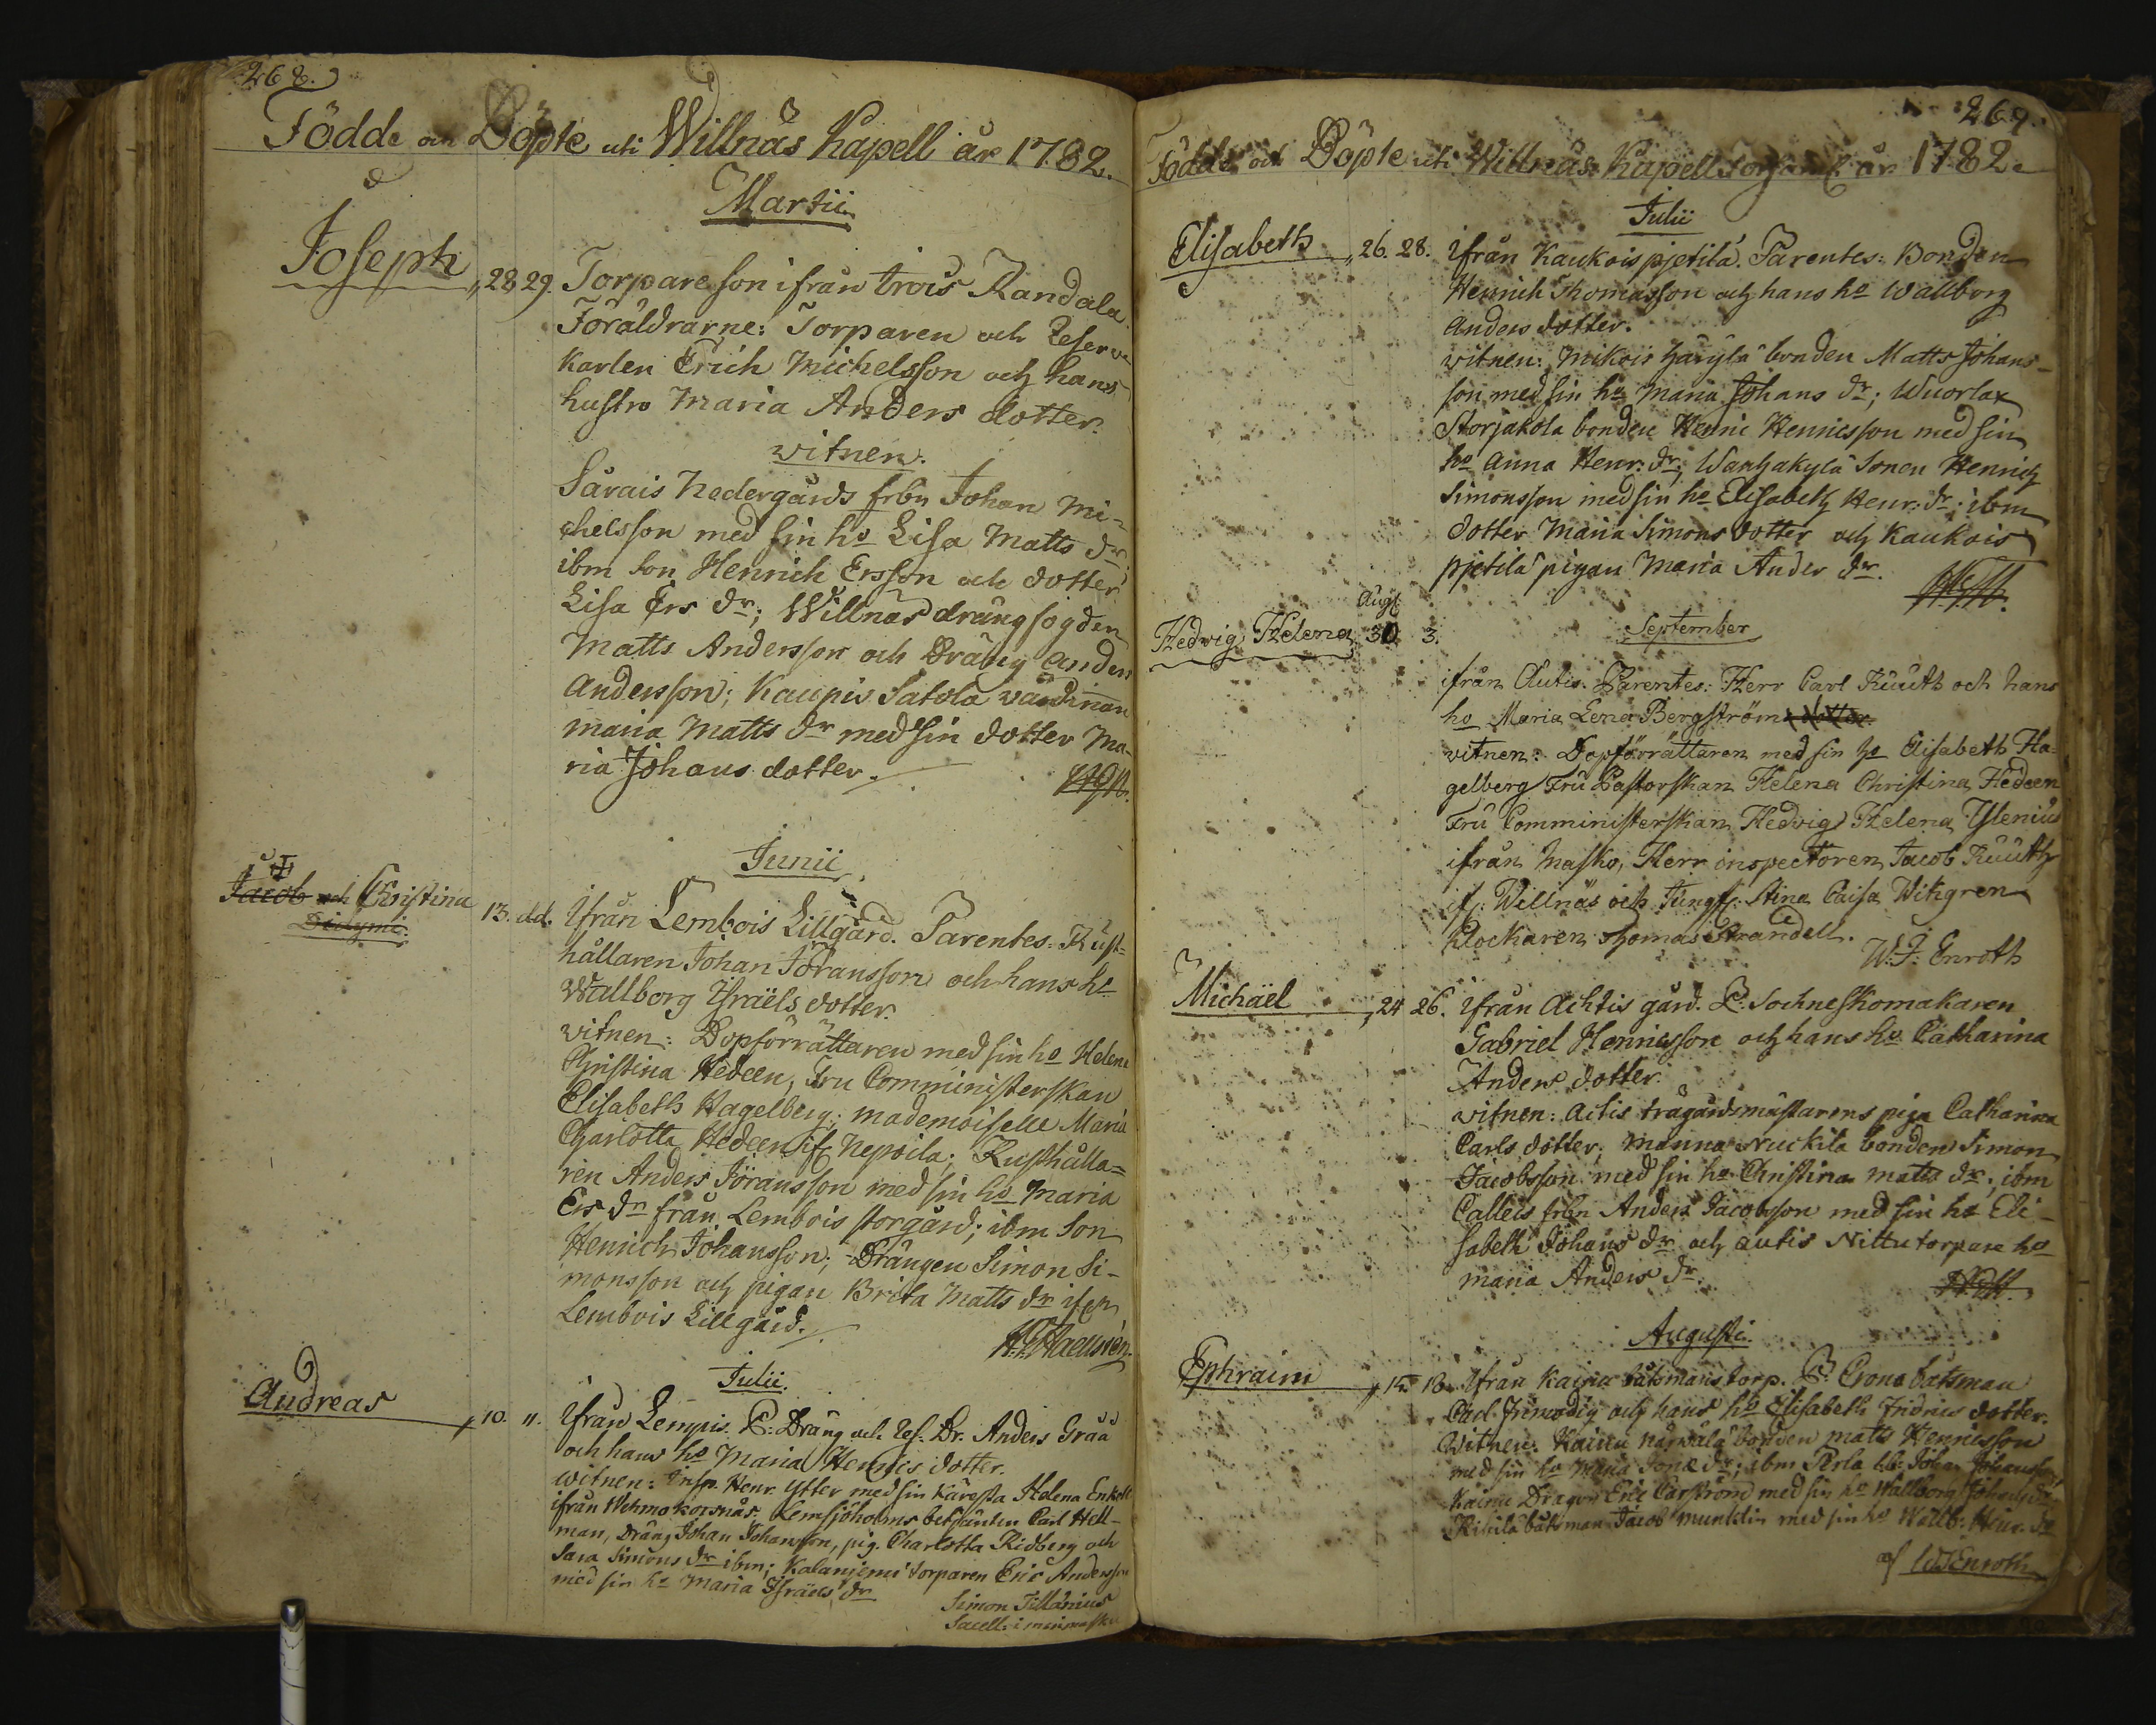 268.
Födde och Döpte uti Willnäs Kapell år 1782.
Martii
Joseph 28. 29. Torpare son ifrån trois Randala
Föräldrarne: Torparen och Reserve
Karlen Erich Michelsson och hans
hustro Maria Anders dotter.
witnen.
Särais Nedergårds frbn Johan Mi-
chelsson med sin ho Lisa Matts dr
ibm son Henrich Ersson och dotter
Lisa Ers dr; Willnäs drängfogden
Matts Andersson och Dräng Anders
Andersson; Kaupis Satola värdinnan
Maria Matts dr med sin dotter Ma-
ria Johans dotter.
Junii
Jacob och Christina 13. dd. Ifrån Lembois Lillgård. Parentes: Rust-
Didymi. hållaren Johan Jöransson och hans ho
Wallborg Israëls dotter.
witnen: Dopförrättaren med sin ho Helena
Christina Hedeen, Fru Comministerskan
Elisabeth Hagelberg; mademoiselle Maria
Charlotta Hedeen if. Nepoila; Rusthålla-
ren Anders Jöransson med sin ho Maria
Ers dr från Lembois storgård; ibm son
Henrich Johansson; Drängen Simon Si-
monsson och pigan Brita Matts dr ifrn
Lembois Lillgård.
Julii.
Andreas 10. 11. Ifrån Lempis. P: Dräng och Res. Dr. Anders Gråå
och hans ho Maria Hennis dotter.
witnen: Insp. Henr. Ytter med sin Käresta Helena Enkell
ifrån Wehmo Korsnäs. Lemsjöholms betjänten Carl Hell-
man, Dräng Johan Johansson, pig. Charlotta Ridberg och
Sara Simons dr ibm; Kalanjemi torparen Eric Andersson
med sin ho Maria Israels dr
Simon Tillänius
Sacell. i
269.
Födde och Döpte uti Willnäs Kapell år 1782.
Julii
Elisabeth 26. 28. Ifrån Kaukois pjetilä. Parentes: Bonden
Henrich Thomasson och hans ho Wallborg
Anders dotter.
witnen: Mikois bonden Matts Johans-
son med sin ho Maria Johans dr; Wuorlax
Storjakola bonden Henric Henricsson med sin
ho Anna Henr. dr; Wanhakylä sonen Henrich
Simonsson med sin ho Elisabeth Henr. dr; ibm
dotter Maria Simons dotter och Kaukois
pjetilä pigan Maria Anders dr.
Aug.
Hedvig Helena 30 3. September
ifrån Autis. Parentes: Herr Carl Ruuth och hans
ho Maria Lena Bergström dotter.
witnen: Dopförrättaren med sin ho Elisabeth Ha-
gelberg Fru Pastorskan Helena Christina Hedeen
Fru Comministerskan Hedvig Helena Ylenius
ifrån Masko, Herr inspectoren Jacob Ruuth
if. Willnäs och Jungf. Stina Caisa Witzgren
klockaren Thomas Strandell.
W. J. Enroth
Michäel 24 26. Ifrån Achtis gård. P. Sochneskomakaren
Gabriel Henricsson och hans ho Catharina
Anders dotter.
witnen: Actis trägårdsmästarens piga Catharina
Carls dotter; Manna Nuckila bonden Simon
Jacobsson med sin ho Christina Matts dr; ibm
Calleis frbn Anders Jacobsson med sin ho Eli-
sabeth Johans dr och Autis Nittu torpare ho
Maria Anders dr.
Augusti.
Ephraim Ifrån Kainu båtsmans torp. P: Crono båtsman
Carl och hans ho Elisabeth Fridrics dotter.
Witnen: Kainu bonden Matts Hennisson
med sin ho Maria dr; ibm Perla Johan Johansson,
Kainu Dragon Eric med sin ho Wallborg dr
båtsman Jacob Munktin med sin ho Wallb. Henr. dr
af WJEnroth